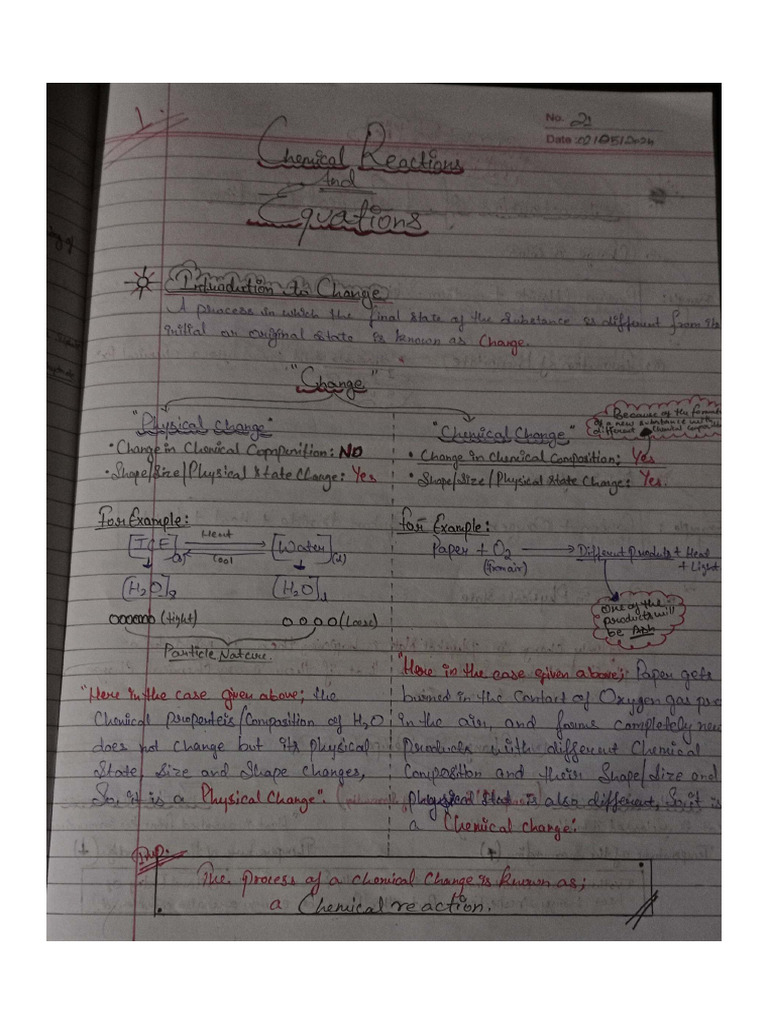 1.
No. 21
Date: 02/05/2024
Chemical Reactions
And
Equations
Introduction to Change
A process in which the final state of the substance is different from its
initial or original state is known as Change.
"Change"
"Physical Change"
• Change in Chemical Copmpusition: NO
• Shape/Size/Physical State Change: Yes
For Example:
[ICE](s) Heat Cool [Water](l)
[H2O]s [H2O]l
(tight) (Loose)
Particle Nature.
"Here in the case given above; the
Chemical Properteis/Composition of H2O
does not change but its physical
State, Size and Shape changes,
So, it is a Physical Change".
"Chemical Change"
Because of the formation
of a new substance with
different Chemical
• Change in Chemical Composition; Yes
• Shape/Size/Physical State Change: Yes.
For Example:
Paper + O2 → Different Products + Heat
(from air) + Light
One of the
products will
be Ash
"Here in the case given above; Paper gets
burned in the Contact of Oxygen gas
in the air, and forms completely new
Products with different Chemical
Composition and their Shape/Size and
physical state is also different, So it is
a Chemical change.
Imp.
The process of a chemical Change is known as;
a Chemical reaction.